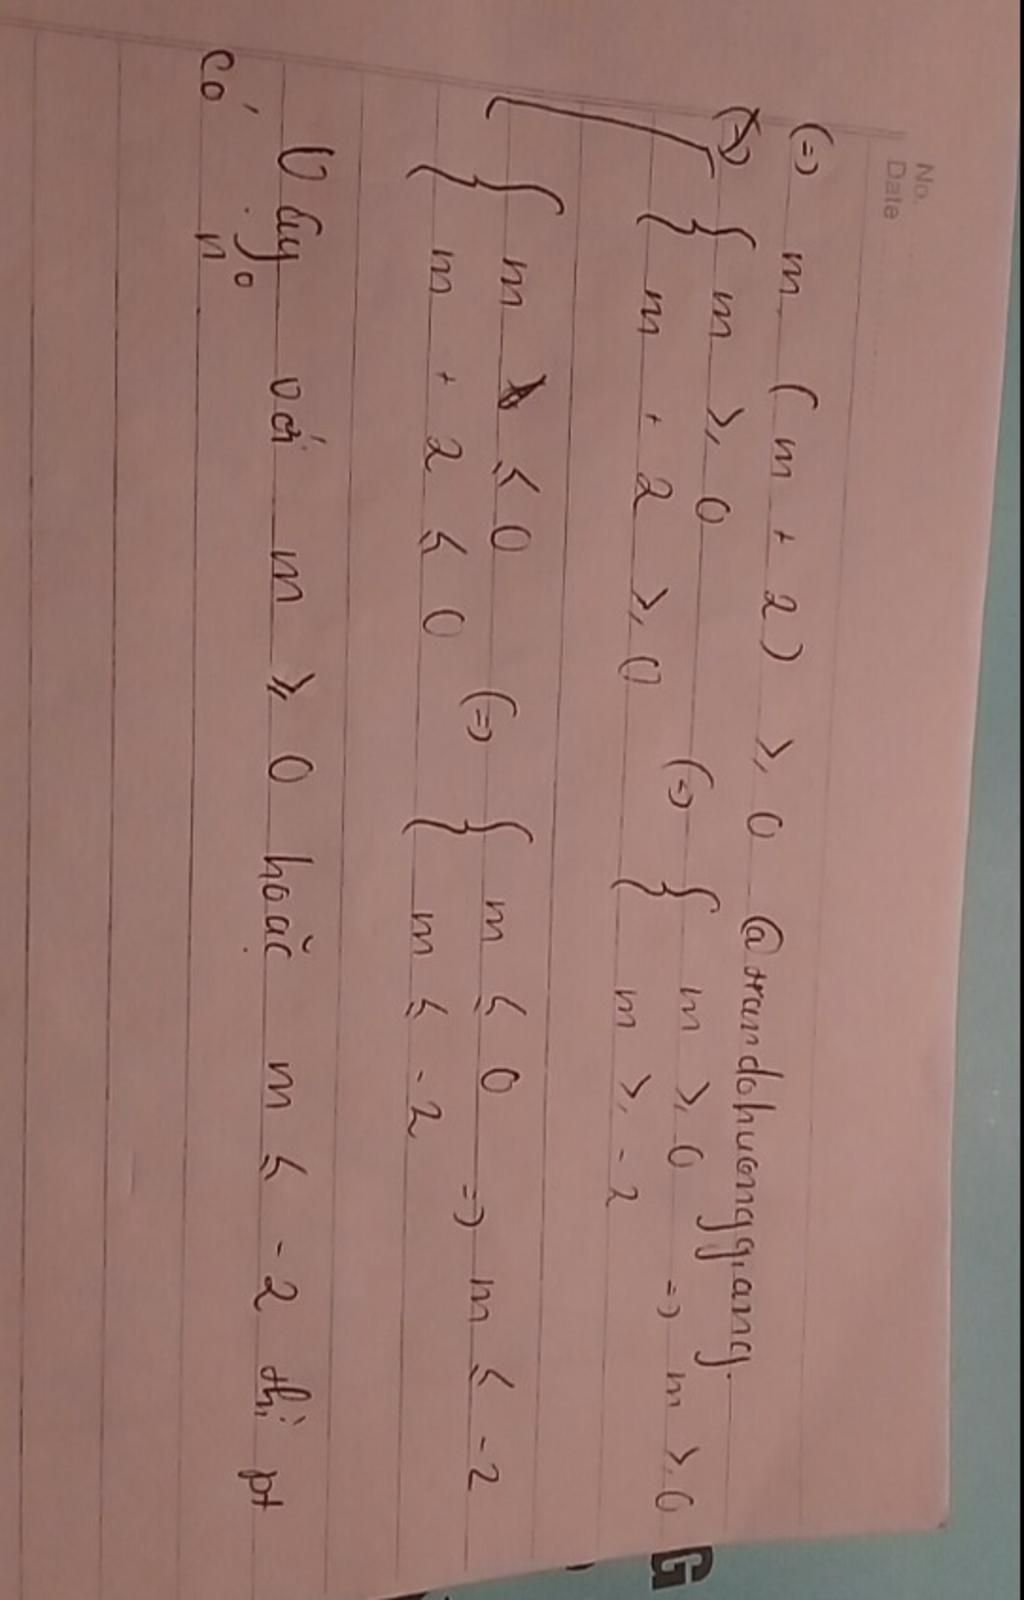 No.
Date
(=) m (m + 2) ≥ 0 @trandohuonggiang.
(=) [ { m ≥ 0
m + 2 ≥ 0 (=) { m ≥ 0
m ≥ -2 => m ≥ 0
{ m ≤ 0
m + 2 ≤ 0 (=) { m ≤ 0
m ≤ -2 => m ≤ -2
Vậy với m ≥ 0 hoặc m ≤ -2 thì pt
có n°
G